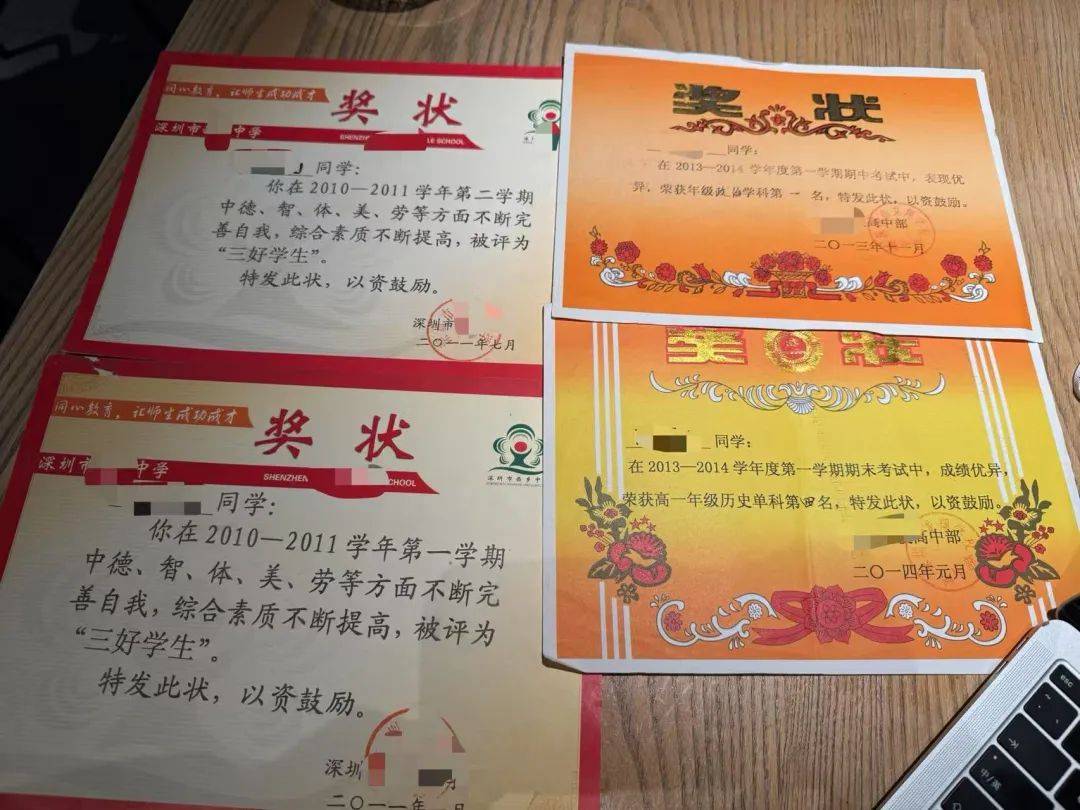 同心教育，让师生成功成才
奖 状
深圳市
中学
SHENZHEN
LE SCHOOL
同学：
你在2010—2011学年第二学期
中德、智、体、美、劳等方面不断完
善自我，综合素质不断提高，被评为
“三好学生”。
特发此状，以资鼓励。
深圳市
二〇一一年七月
奖 状
同学：
在2013—2014学年度第一学期期中考试中，表现优
异，荣获年级政治学科第一名，特发此状，以资鼓励。
高中部
二〇一三年十一月
同心教育，让师生成功成才
奖 状
深圳市
中学
SHENZHEN
SCHOOL
同学：
你在2010—2011学年第一学期
中德、智、体、美、劳等方面不断完
善自我，综合素质不断提高，被评为
“三好学生”。
特发此状，以资鼓励。
深圳
二〇一一年
月
奖 状
同学：
在2013—2014学年度第一学期期末考试中，成绩优异，
荣获高一年级历史单科第四名，特发此状，以资鼓励。
高中部
二〇一四年元月
esc
中/英